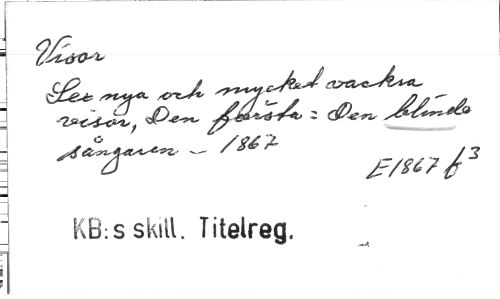 Visor
Sex nya och mycket vackra
visor, Den första = Den blinde
sångaren – 1867
E1867 f3
KB:s skill. Titelreg.